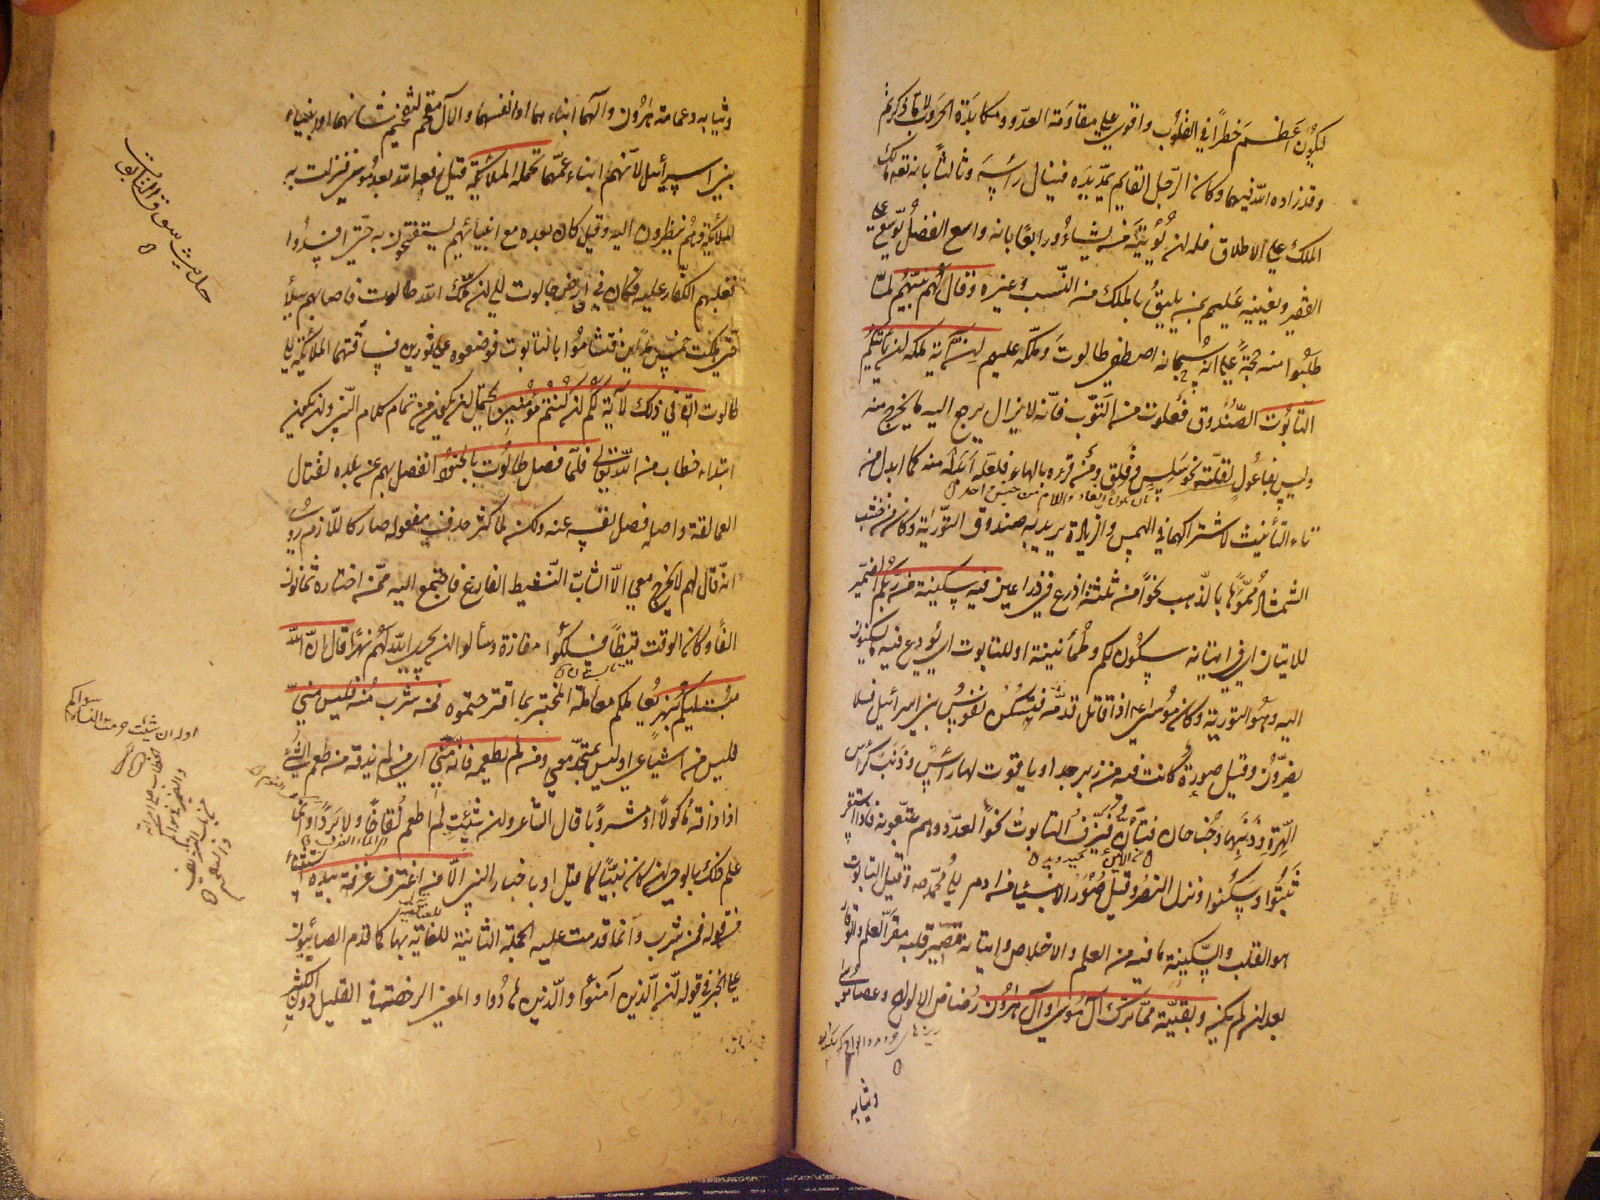 ليكون أعظم خطرا في القلوب واقوى على مقاومة العدو ومكابدة الحروب لا ما ذكرتم
وقد زاده الله فيهما وكان الرجل القايم يمد يده فينال رأسه وثالثا بانه تعالى مالك
الملك على الاطلاق فله ان يؤتيه من يشاء ورابعا بانه واسع الفضل يوسع على
الفقير ويغنيه عليم بمن يليق بالملك من النسب وغيره وقال لهم نبيهم لما
طلبوا منه حجة على انه سبحانه اصطفى طالوت وملكه عليهم ان آية ملكه ان يأتيكم
التابوت الصندوق فعلوت من التوب فانه لا يزال يرجع اليه ما يخرج منه
وليس بفاعول لقلة نحو سلس وقلق ومن قرءه بالهاء فلعله ابدله منه كما ابدل من
تاء التأنيث لاشتراكهما في الهمس والزيادة يريد به صندوق التورية وكان من خشب
الشمشاد مموها بالذهب نحوا من ثلثة اذرع في ذراعين فيه سكينة من ربكم الضمير
للاتيان اي في اتيانه سكون لكم وطمأنينة او للتابوت اي يودع فيه ما تسكنون
اليه وهو التورية وكان موسى اذا قاتل قدمه فتسكن نفوس بني اسرائيل فلا
يفرون وقيل صورة كانت فيه من زبرجد او ياقوت لها رأس وذنب كرأس
الهرة وذنبها وجناحان فتأن فيزف التابوت نحو العدو وهم يتبعونه فاذا استقر
ثبتوا وسكنوا ونزل النصر وقيل صور الانبياء من ادم الى محمد وقيل التابوت
هو القلب والسكينة ما فيه من العلم والاخلاص واتيانه تصيير قلبه مقر العلم والوقار
بعد ان لم يكن وبقية مما ترك آل موسى وآل هرون رضاض الالواح وعصا موسى
وثيابه
وثيابه وعمامة هرون وآلهما ابناءهما او انفسهما والآل مقحم لتفخيم شانهما او انبياء
بني اسرائيل لانهم ابناء عمهما تحمله الملائكة قيل رفعه الله بعد موسى فنزلت به
الملائكة وهم ينظرون اليه وقيل كان بعده مع انبيائهم يستفتحون به حتى افسدوا
فغلبهم الكفار عليه فكان في ارض جالوت الى ان ملك الله طالوت فاصابهم بلاء
حتى هلكت خمس مداين فتشأموا بالتابوت فوضعوه على ثورين فساقتهما الملائكة الى
طالوت ان في ذلك لآية لكم ان كنتم مؤمنين يحتمل ان يكون من تمام كلام النبي وان يكون
ابتداء خطاب من الله تعالى فلما فصل طالوت بالجنود انفصل بهم عن بلده لقتال
العمالقة واصله فصل نفسه عنه ولكن لما كثر حذف مفعوله صار كاللازم روى
انه قال لهم لا يخرج معي الا الشاب النشيط الفارغ فاجتمع اليه ممن اختاره ثمانون
الفا وكان الوقت قيظا فسلكوا مفازة وسألوا ان يجري الله لهم نهرا قال ان الله
مبتليكم بنهر يعاملكم معاملة المختبر بما اقترحتموه فمن شرب منه فليس مني
فليس من اشياعي او ليس بمتحد معي ومن لم يطعمه فانه مني اي من لم يذقه من طعم الشئ
اذا ذاقه مأكولا او مشروبا قال الشاعر وان شئت لم اطعم نقاخا ولا بردا وانما
علم ذلك بالوحي ان كان نبيا كما قيل او باخبار النبي الا من اغترف غرفة بيده استثناء
من قوله فمن شرب وانما قدمت عليه الجملة الثانية للعناية بها كما قدم الصابئون
على الخبر في قوله ان الذين آمنوا والذين هادوا والمعنى الرخصة في القليل دون الكثير